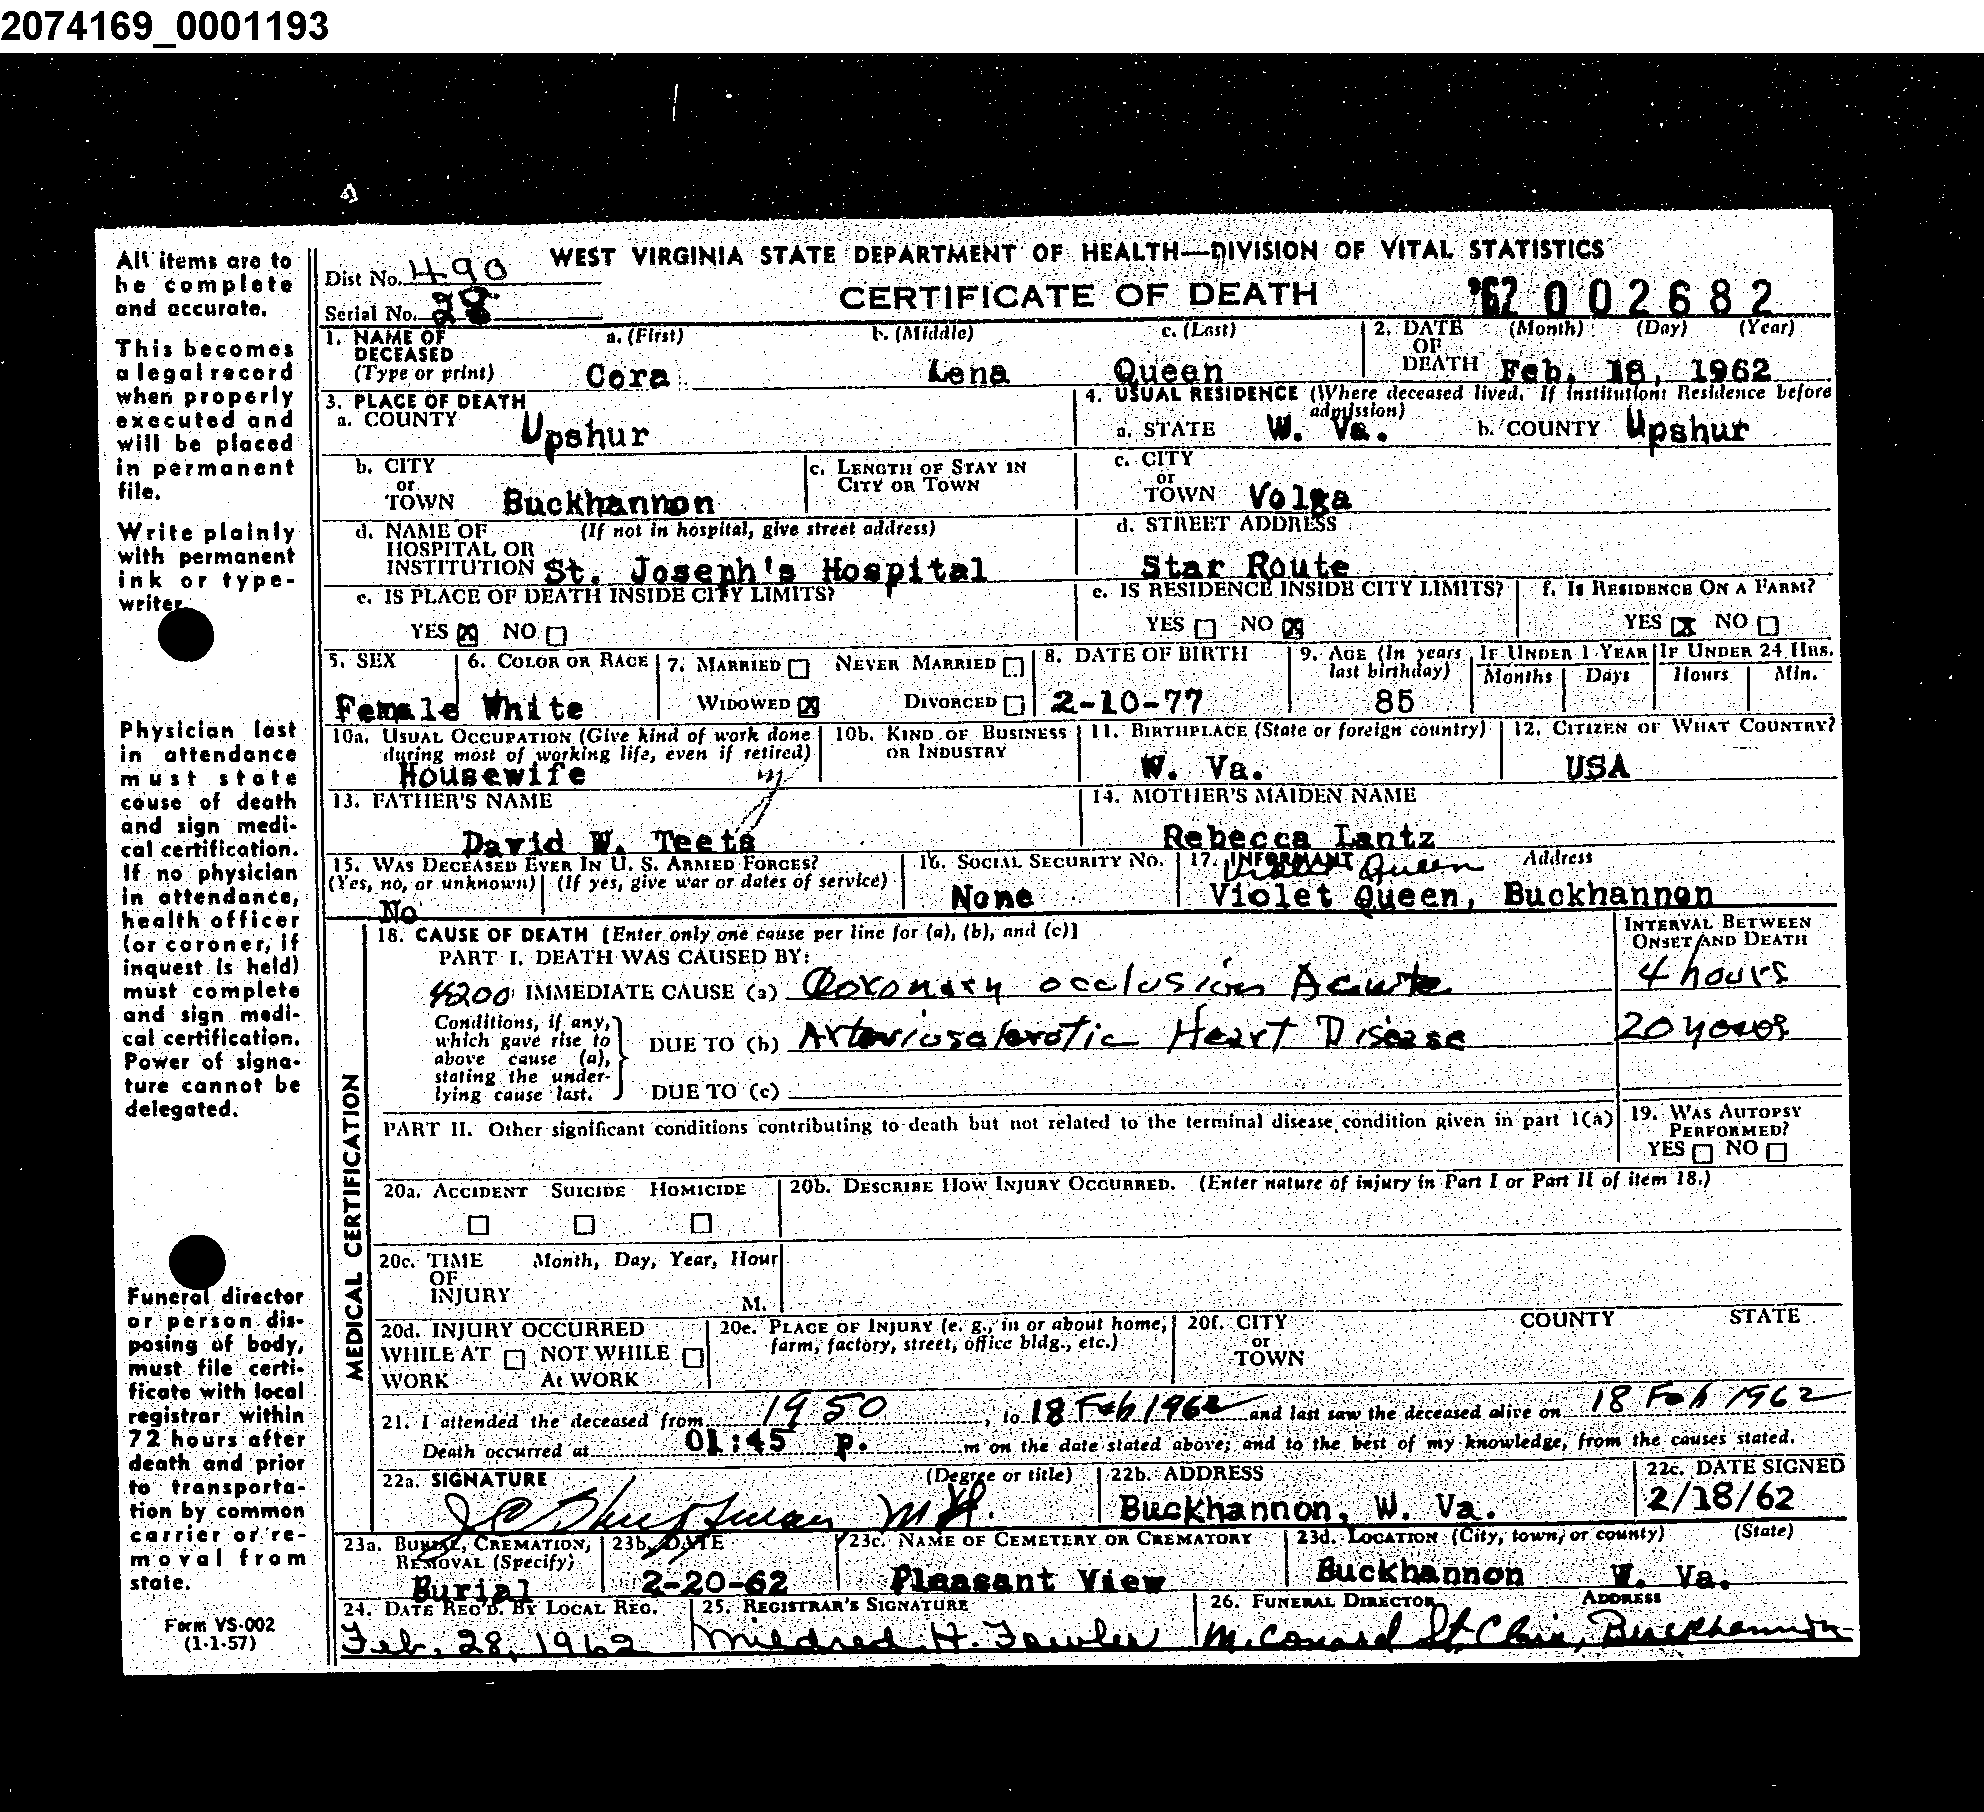 2074169_0001193
All items are to
be complete
and accurate.
This becomes
a legal record
when properly
executed and
will be placed
in permanent
file.
Write plainly
with permanent
ink or type-
writer
Physician last
in attendance
must state
cause of death
and sign medi-
cal certification.
If no physician
in attendance,
health officer
(or coroner, if
inquest is held)
must complete
and sign medi-
cal certification.
Power of signa-
ture cannot be
delegated.
Funeral director
or person dis-
posing of body,
must file certi-
ficate with local
registrar within
72 hours after
death and prior
to transporta-
tion by common
carrier or re-
moval from
state.
Form VS-002
(1-1-57)
WEST VIRGINIA STATE DEPARTMENT OF HEALTH—DIVISION OF VITAL STATISTICS
Dist No. 490
CERTIFICATE OF DEATH '62 002682
Serial No. 28
1. NAME OF DECEASED (Type or print) a. (First) b. (Middle) c. (Last) 2. DATE OF DEATH (Month) (Day) (Year)
Cora Lena Queen Feb. 18, 1962
3. PLACE OF DEATH 4. USUAL RESIDENCE (Where deceased lived. If institution: Residence before admission)
a. COUNTY Upshur a. STATE W. Va. b. COUNTY Upshur
b. CITY or TOWN Buckhannon c. LENGTH OF STAY IN CITY OR TOWN c. CITY or TOWN Volga
d. NAME OF HOSPITAL OR INSTITUTION (If not in hospital, give street address) d. STREET ADDRESS
St. Joseph's Hospital Star Route
e. IS PLACE OF DEATH INSIDE CITY LIMITS? e. IS RESIDENCE INSIDE CITY LIMITS? f. IS RESIDENCE ON A FARM?
YES X NO YES NO X YES X NO
5. SEX 6. COLOR OR RACE 7. MARRIED NEVER MARRIED 8. DATE OF BIRTH 9. AGE (In years last birthday) IF UNDER 1 YEAR IF UNDER 24 HRS.
Months Days Hours Min.
Female White WIDOWED X DIVORCED 2-10-77 85
10a. USUAL OCCUPATION (Give kind of work done during most of working life, even if retired) 10b. KIND OF BUSINESS OR INDUSTRY 11. BIRTHPLACE (State or foreign country) 12. CITIZEN OF WHAT COUNTRY?
Housewife W. Va. USA
13. FATHER'S NAME 14. MOTHER'S MAIDEN NAME
David W. Teets Rebecca Lantz
15. WAS DECEASED EVER IN U. S. ARMED FORCES? 16. SOCIAL SECURITY NO. 17. INFORMANT Violet Queen Address
(Yes, no, or unknown) (If yes, give war or dates of service)
No None Violet Queen, Buckhannon
MEDICAL CERTIFICATION
18. CAUSE OF DEATH [Enter only one cause per line for (a), (b), and (c)] INTERVAL BETWEEN ONSET AND DEATH
PART I. DEATH WAS CAUSED BY:
4200 IMMEDIATE CAUSE (a) Coronary occlusion Acute 4 hours
Conditions, if any, which gave rise to above cause (a), stating the under-lying cause last.
DUE TO (b) Arteriosclerotic Heart Disease 20 years
DUE TO (c)
PART II. Other significant conditions contributing to death but not related to the terminal disease condition given in part 1(a) 19. WAS AUTOPSY PERFORMED?
YES NO
20a. ACCIDENT SUICIDE HOMICIDE 20b. DESCRIBE HOW INJURY OCCURRED. (Enter nature of injury in Part I or Part II of item 18.)
20c. TIME OF INJURY Month, Day, Year, Hour
M.
20d. INJURY OCCURRED 20e. PLACE OF INJURY (e. g., in or about home, farm, factory, street, office bldg., etc.) 20f. CITY or TOWN COUNTY STATE
WHILE AT WORK NOT WHILE At WORK
21. I attended the deceased from 1950, to 18 Feb 1962 and last saw the deceased alive on 18 Feb 1962
Death occurred at 01:45 p. m on the date stated above; and to the best of my knowledge, from the causes stated.
22a. SIGNATURE (Degree or title) 22b. ADDRESS 22c. DATE SIGNED
Buckhannon, W. Va. 2/18/62
23a. BURIAL, CREMATION, REMOVAL (Specify) 23b. DATE 23c. NAME OF CEMETERY OR CREMATORY 23d. LOCATION (City, town, or county) (State)
Burial 2-20-62 Pleasant View Buckhannon W. Va.
24. DATE REC'D. BY LOCAL REG. 25. REGISTRAR'S SIGNATURE 26. FUNERAL DIRECTOR ADDRESS
Feb. 28, 1962 Mildred H. Fowler St. Clair, Buckhannon